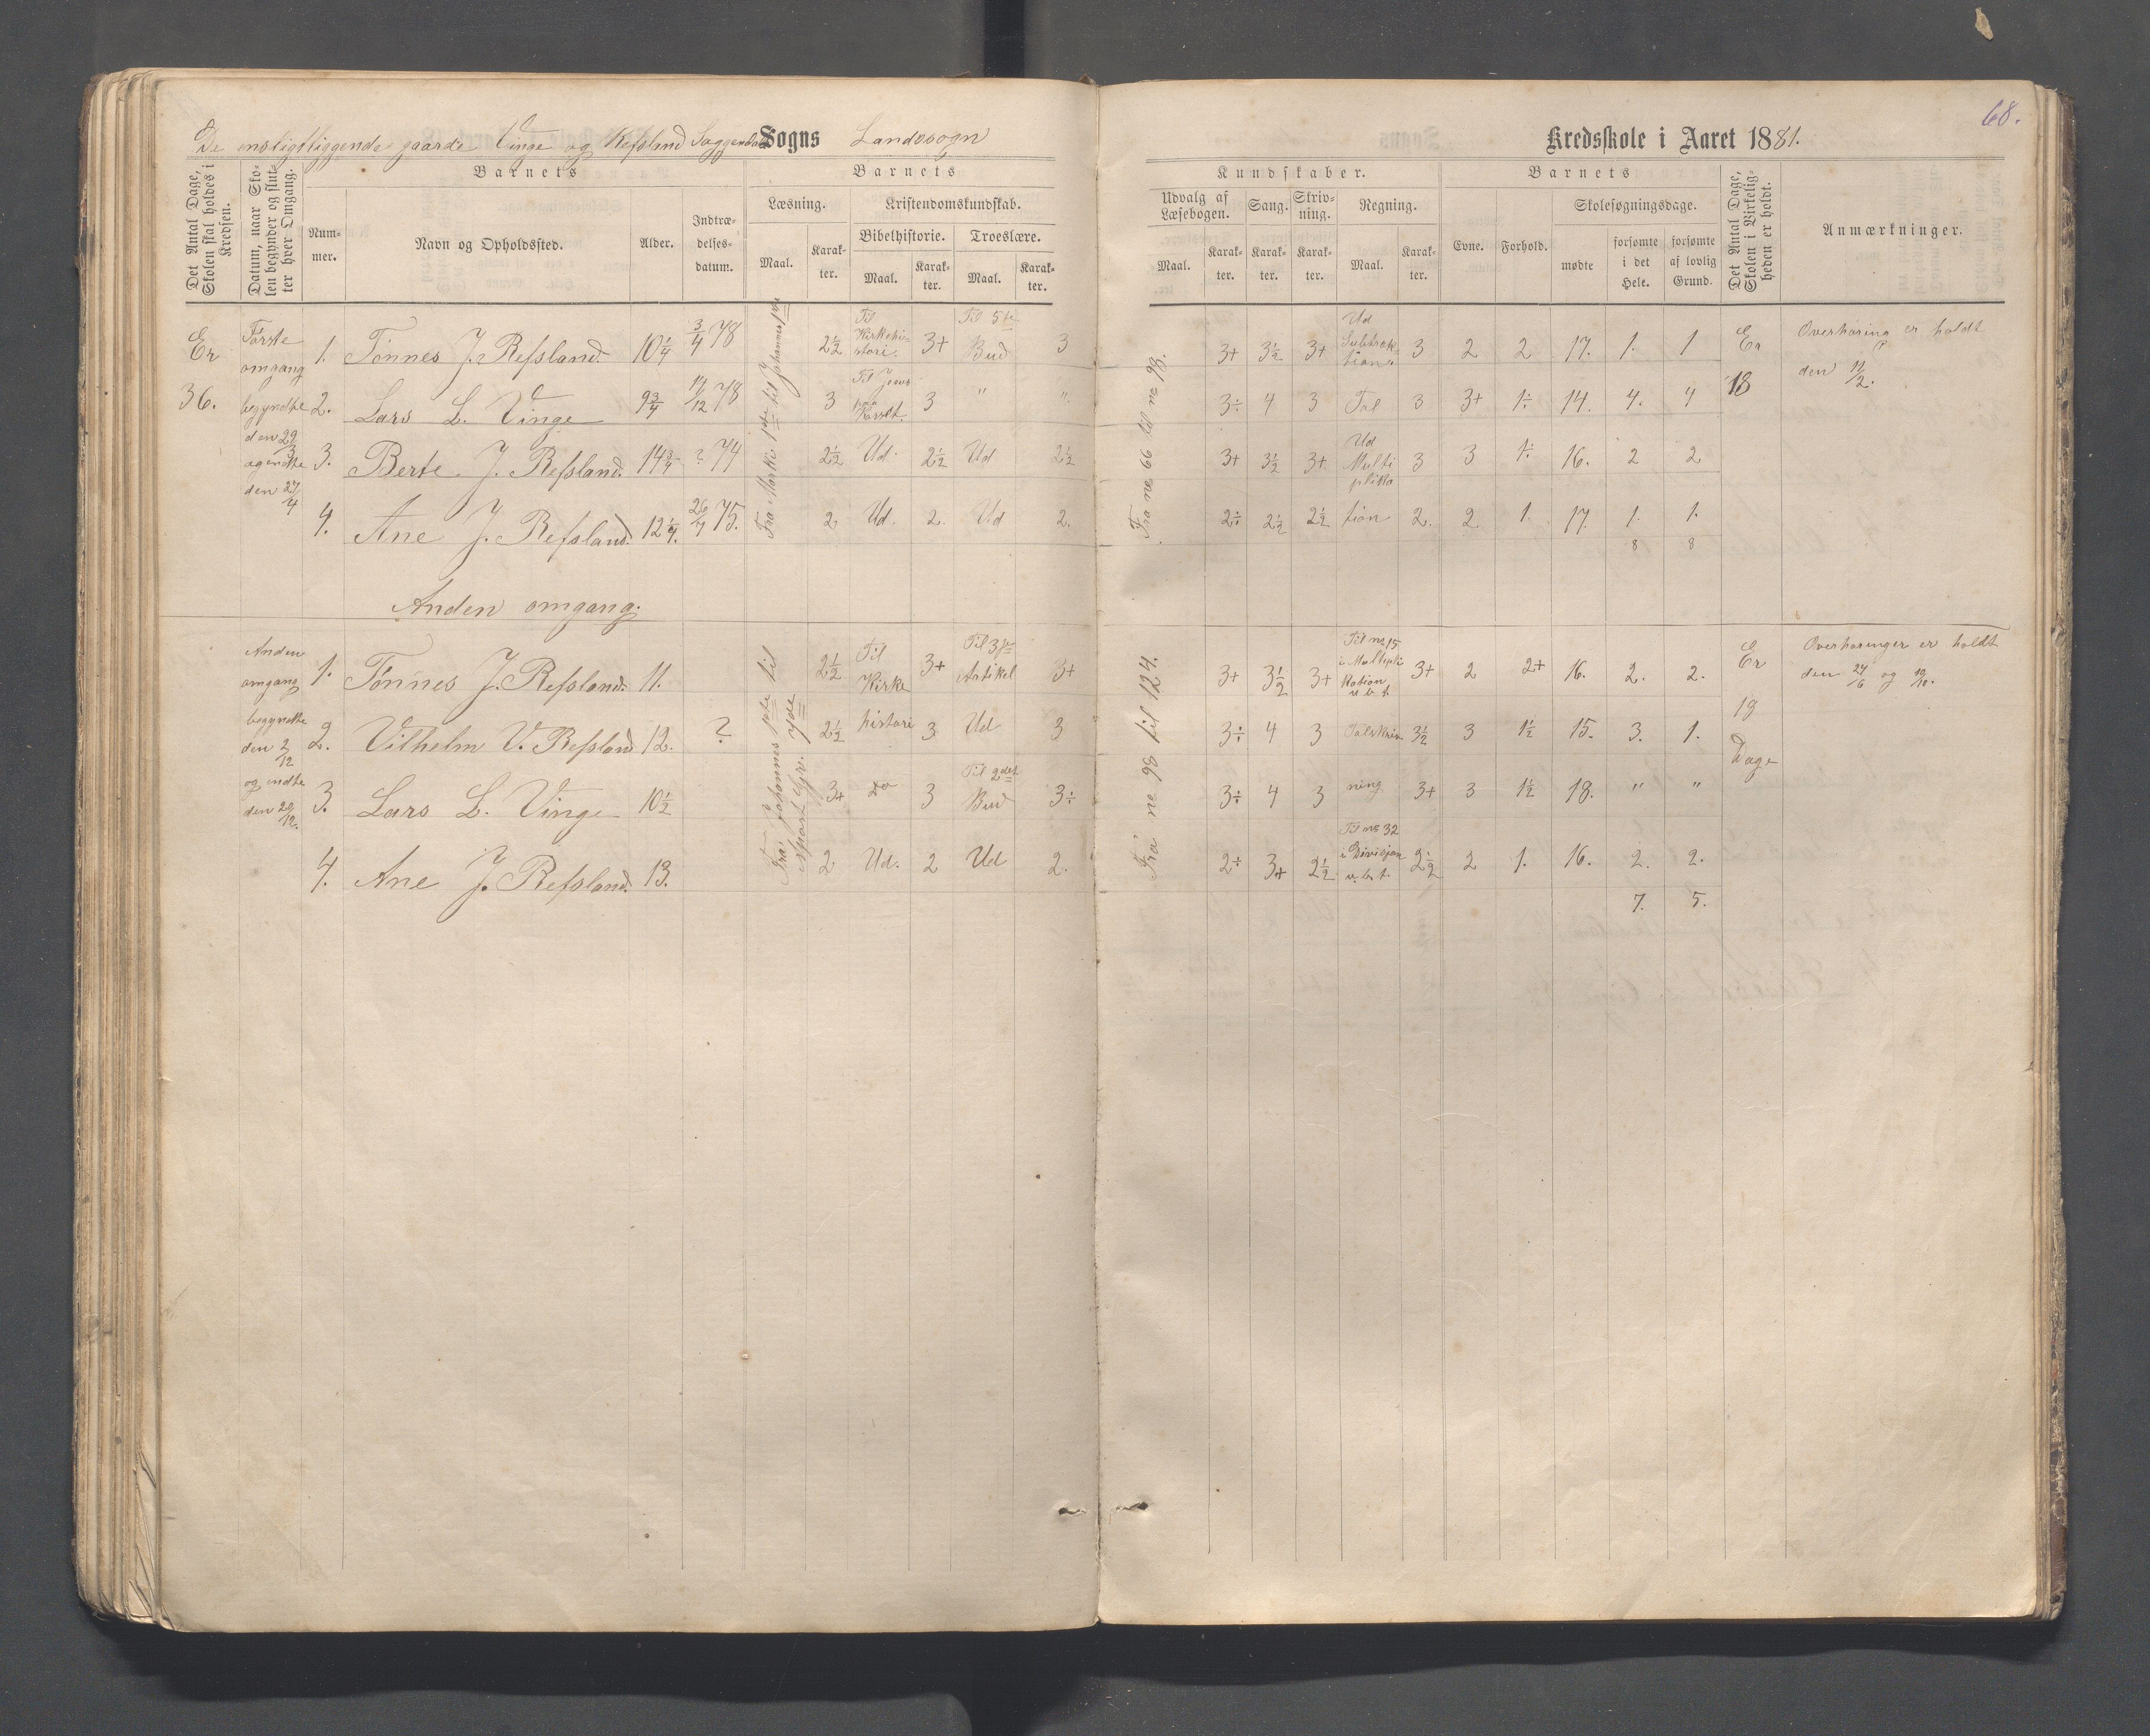 68.
De ensligtliggende gaarde Vinge og Refsland Soggendals Sogns Landsogn Kredsskole i Aaret 1881.
Det Antal Dage, Skolen skal holdes i Kredsen.
Datum, naar Skolen begynder og slutter hver Omgang.
Barnets
Nummer.
Navn og Opholdssted.
Alder.
Indtrædelsesdatum.
Barnets
Læsning.
Maal.
Karakter.
Kristendomskundskab.
Bibelhistorie.
Maal.
Karakter.
Troeslære.
Maal.
Karakter.
Kundskaber.
Udvalg af Læsebogen.
Maal.
Karakter.
Sang.
Karakter.
Skrivning.
Karakter.
Regning.
Maal.
Karakter.
Barnets
Evne.
Forhold.
Skolesøgningsdage.
mødte
forsømte i det Hele.
forsømte af lovlig Grund.
Det Antal Dage, Skolen i Virkeligheden er holdt.
Anmærkninger.
Er
36.
Første
omgang
begyndte
den 29/3
og endte
den 27/4
Fra Marki 1ste til Johannes 1ste
Fra no 66 til no 98.
1. Tönnes J. Refsland. 10 1/4 3/4 78 2 1/2 Til Kirkehistorie. 3+ Til 5te Bud 3 3+ 3 1/2 3+ Ud Subtraktion 3 2 2 17. 1. 1
2. Lars L. Vinge 9 3/4 17/12 78 3 Til Jesus Korsf. 3 " " 3÷ 4 3 Tal 3 3+ 1÷ 14. 4. 4
3. Berte J. Refsland. 14 3/4 ? 74 2 1/2 Ud. 2 1/2 Ud 2 1/2 3+ 3 1/2 3+ Ud Multiplika 3 3 1÷ 16. 2 2
4. Ane J. Refsland. 12 1/4. 26/4 75. 2 Ud. 2. Ud 2. 2÷ 2 1/2 2 1/2 tion 2. 2. 1. 17. 1. 1.
8 8
Er
18
Overhøring er holdt
den 11/2.
Anden omgang.
Anden
omgang
begyndte
den 2/12
og endte
den 20/12.
Fra Johannes 1ste til
Apost. Gjr. 7de
Fra no 98 til 124.
1. Tönnes J. Refsland. 11. 2 1/2 Til Kirke 3+ Til 3die Artikel 3+ 3+ 3 1/2 3+ Til no 15 i Multiplikation u. b. t. 3+ 2 2+ 16. 2. 2.
2. Vilhelm V. Refsland 12. ? 2 1/2 histori 3 Ud 3 3÷ 4 3 Talskriv 3 1/2 3 1 1/2 15. 3. 1.
3. Lars L. Vinge 10 1/2 3+ do 3 Til 2det Bud 3÷ 3÷ 4 3 ning 3+ 3 1 1/2 18. " "
4. Ane J. Refsland. 13. 2 Ud. 2 Ud 2. 2÷ 3+ 2 1/2 Til no 32 i Divisjon u. b. t. 2 1/2 2 1. 16. 2. 2.
7. 5.
Er
18
Dage
Overhøringer er holdt
den 27/6 og 10/10.